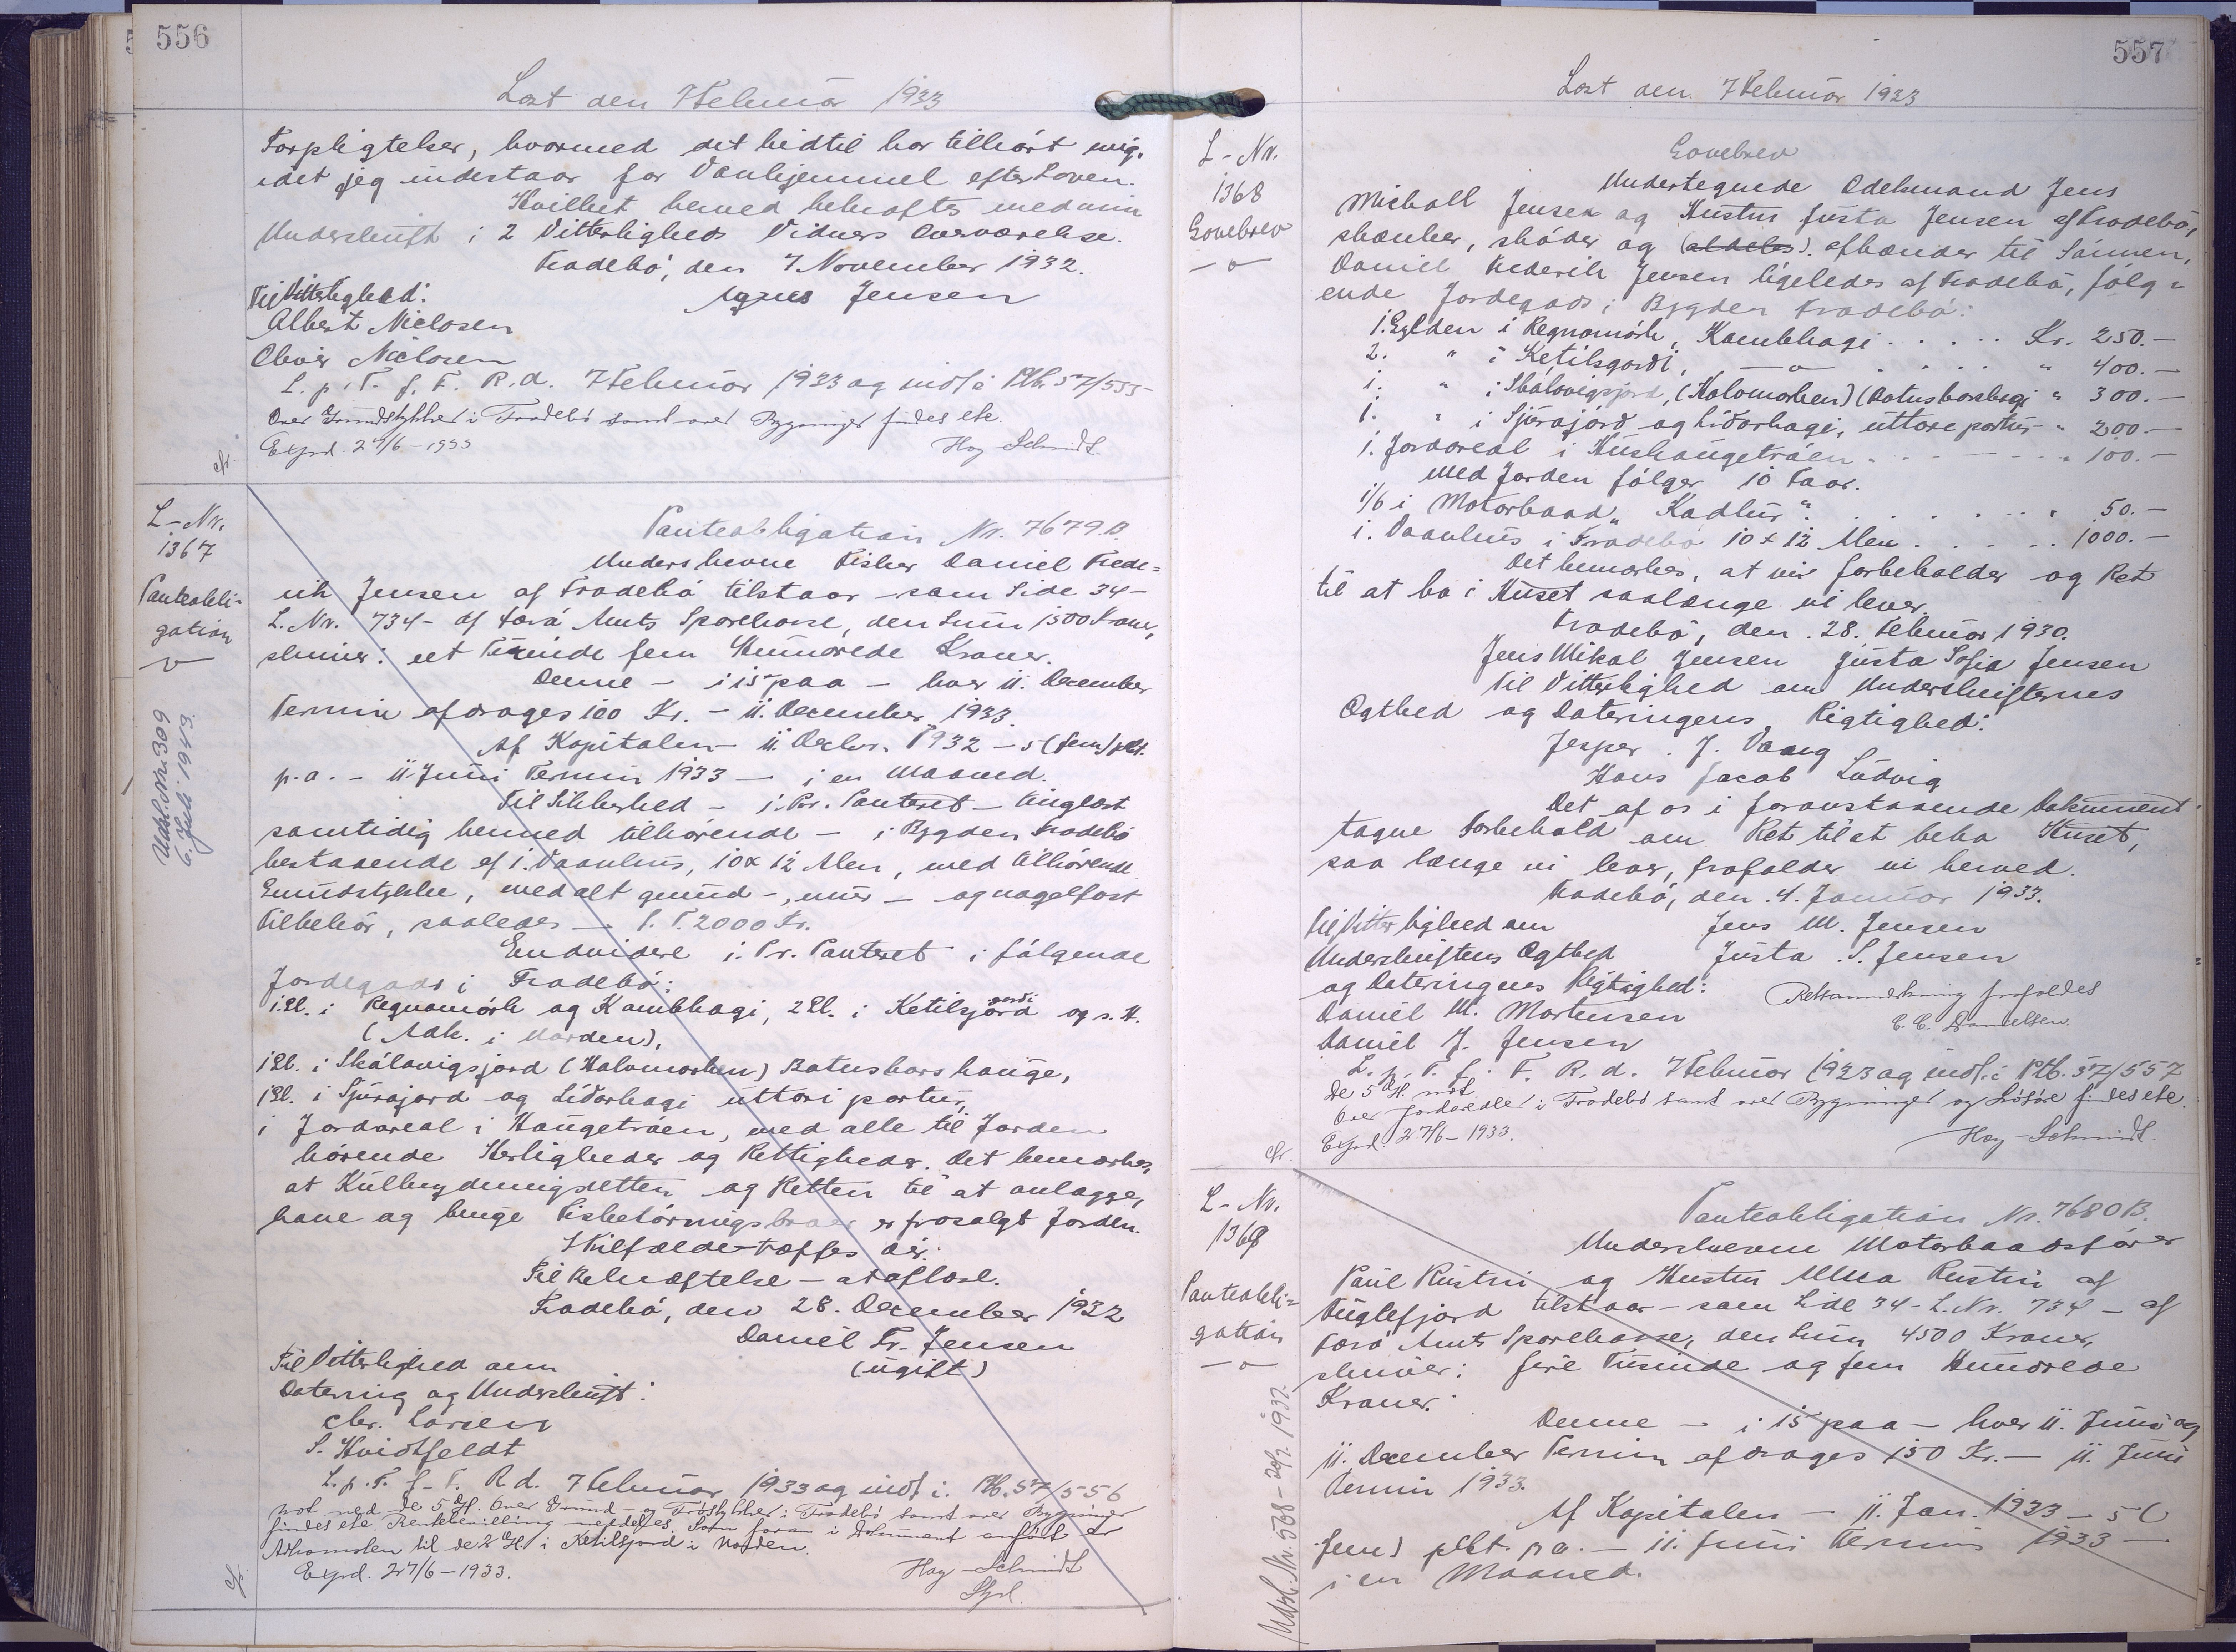 556
Læst den 7 Februar 1933
Forpligtelser, hvormed det hidtil har tilhørt mig,
idet jeg indestaar for Vanhjemmel efter Loven.
Hvilket herved bekræftes med min
Underskrift i 2 Vitterligheds Vidners Overværelse.
Tradebø, den 7 November 1932.
Til Vitterlighed:
Agnes Jensen
Albert Niclasen
Oliver Niclasen
L. p. T. f. F. R. d. 7 Februar 1933 og indf. i Ptb. 57/555
Over Grundstykket i Tradebø samt over Bygninger findes ete.
Expd. 27/6-1933
Hoy-Schmidt.
cfr.
L-Nr.
1367
Panteobli-
gation
Udsl. Nr. 309
6. Juli 1943.
Panteobligation Nr. 7679.B.
Underskrevne Fisker Daniel Frede=
rik Jensen af Tradebø tilstaar - som Side 34-
L. Nr. 734- af Færø Amts Sparekasse, den Sum 1500 Kroner,
skriver: eet Tusinde fem Hundrede Kroner.
Denne - i 15 paa - hver 11. December
Termin afdrages 100 Kr. - 11. December 1933.
Af Kapitalen - 11. Decbr. 1932 - 5 (fem) pCt.
p.a. - 11. Juni Termin 1933 - i en Maaned.
Til Sikkerhed - 1. Pr. Panteret - tinglæst
samtidig hermed tilhørende - i Bygden Tradebø
bestaaende af 1. Vaanhus, 10 x 12 Alen, med tilhørende
Grundstykke, med alt grund-, mur- og nagelfast
tilbehør, saaledes - f. T. 2000 Kr.
Endvidere 1. Pr. Panteret i følgende
Jordegods i Tradebø:
1 Gl. i Regnamørk og Kambhagi, 2 Gl. i Ketilsjørd gerdi og s. H.
(Adk. i Norden),
1 Gl. i Skálavigsjørd (Halvmarken) Botnsharshauge,
1 Gl. i Sjúrajørd og Líðarhagi uttari partur,
1 Jordareal i Haugetraen, med alle til Jorden
hørende Herligheder og Rettigheder. Det bemærkes,
at Kulbrydningsretten og Retten til at anlægge,
have og bruge Fisketørringspladser er frasolgt Jorden.
I Tilfælde - træffes der.
Til Bekræftelse - at aflæse.
Tradebø, den 28. December 1932
Daniel Fr. Jensen
(ugift)
Til Vitterlighed om
Datering og Underskrift:
Chr. Larsen
S. Hvidtfeldt
L. p. T. f. F. R. d. 7 Februar 1933 og indf. i. Ptb. 57/556
Not. ved de 5 Hft. Over Grund- og Jordstykker i Tradebø samt over Bygninger
findes ete.
Adkomsten til de 2 Gl. i Ketilsjørd i Norden.
Expd. 27/6-1933.
Hoy-Schmidt
cfr.
557
Læst den 7 Februar 1933
L-Nr.
1368
Gavebrev
Gavebrev
Undertegnede Odelsmand Jens
Michall Jensen og Hustru Justa Jensen af Tradebø,
skænker, skøder og (aldeles) afhænder til Sønnen,
Daniel Frederik Jensen ligeledes af Tradebø, følg=
ende Jordegods i Bygden Tradebø:
1. Gylden i Regnamørk, Kambhagi . . . . . Kr. 250.-
2. " i Ketilsgerdi, -o- . . . . " 400.-
1. " i Skálavigsjørd, (Halvmarken) (Botnsharshagi " 300.-
1. " i Sjúrajørd og Líðarhagi, uttare partur - " 200.-
1. Jordareal i Hushaugetráen . . . . . " 100.-
Med Jorden følger 10 Faar.
1/6 i Motorbaad "Kadlur" . . . . . . " 50.-
1. Vaanhus i Tradebø 10 x 12 Alen . . . . . 1000.-
Det bemærkes, at vi forbeholder os Ret
til at bo i Huset saalænge vi lever.
Tradebø, den 28. Februar 1930.
Jens Mikal Jensen Justa Sofia Jensen
Til Vitterlighed om Underskrifternes
Ægthed og Dateringens Rigtighed:
Jesper J. Vaag
Hans Jacob Ludvig
Det af os i foranstaaende Dokument
tagne Forbehold om Ret til at bebo Huset,
saa længe vi lever, frafalder vi herved.
Tradebø, den 4. Januar 1933.
Til Vitterlighed om
Jens M. Jensen
Underskriftens Ægthed
Justa S. Jensen
og Dateringens Rigtighed:
Retsanmerkning frafaldes
Daniel M. Mortensen
E. C. Danielsen.
Daniel J. Jensen
L. p. T. f. F. R. d. 7 Februar 1933 og indf. i Ptb. 57/557
De 5 Hft. not.
Over Jordarealer i Tradebø samt over Bygninger og Løsøre findes ete.
Expd. 27/6-1933.
Hoy-Schmidt.
cfr.
L-Nr.
1369
Panteobli=
gation
Udsl. Nr. 568 - 1937.
Panteobligation Nr. 7680B.
Underskrevne Motorbaadsfører
Paul Rustin og Hustru Rustin af
Fuglefjord tilstaar - som Side 34 - L. Nr. 734 - af
Færø Amts Sparekasse, den Sum 4500 Kroner,
skriver: fire Tusinde og fem Hundrede
Kroner.
Denne - i 15 paa - hver 11. Juni og
11. December Termin afdrages 150 Kr. - 11. Juni
Termin 1933.
Af Kapitalen - 11. Jan. 1933 - 5 (
fem) pCt. p.a. - 11. Juni Termin 1933 -
i en Maaned.